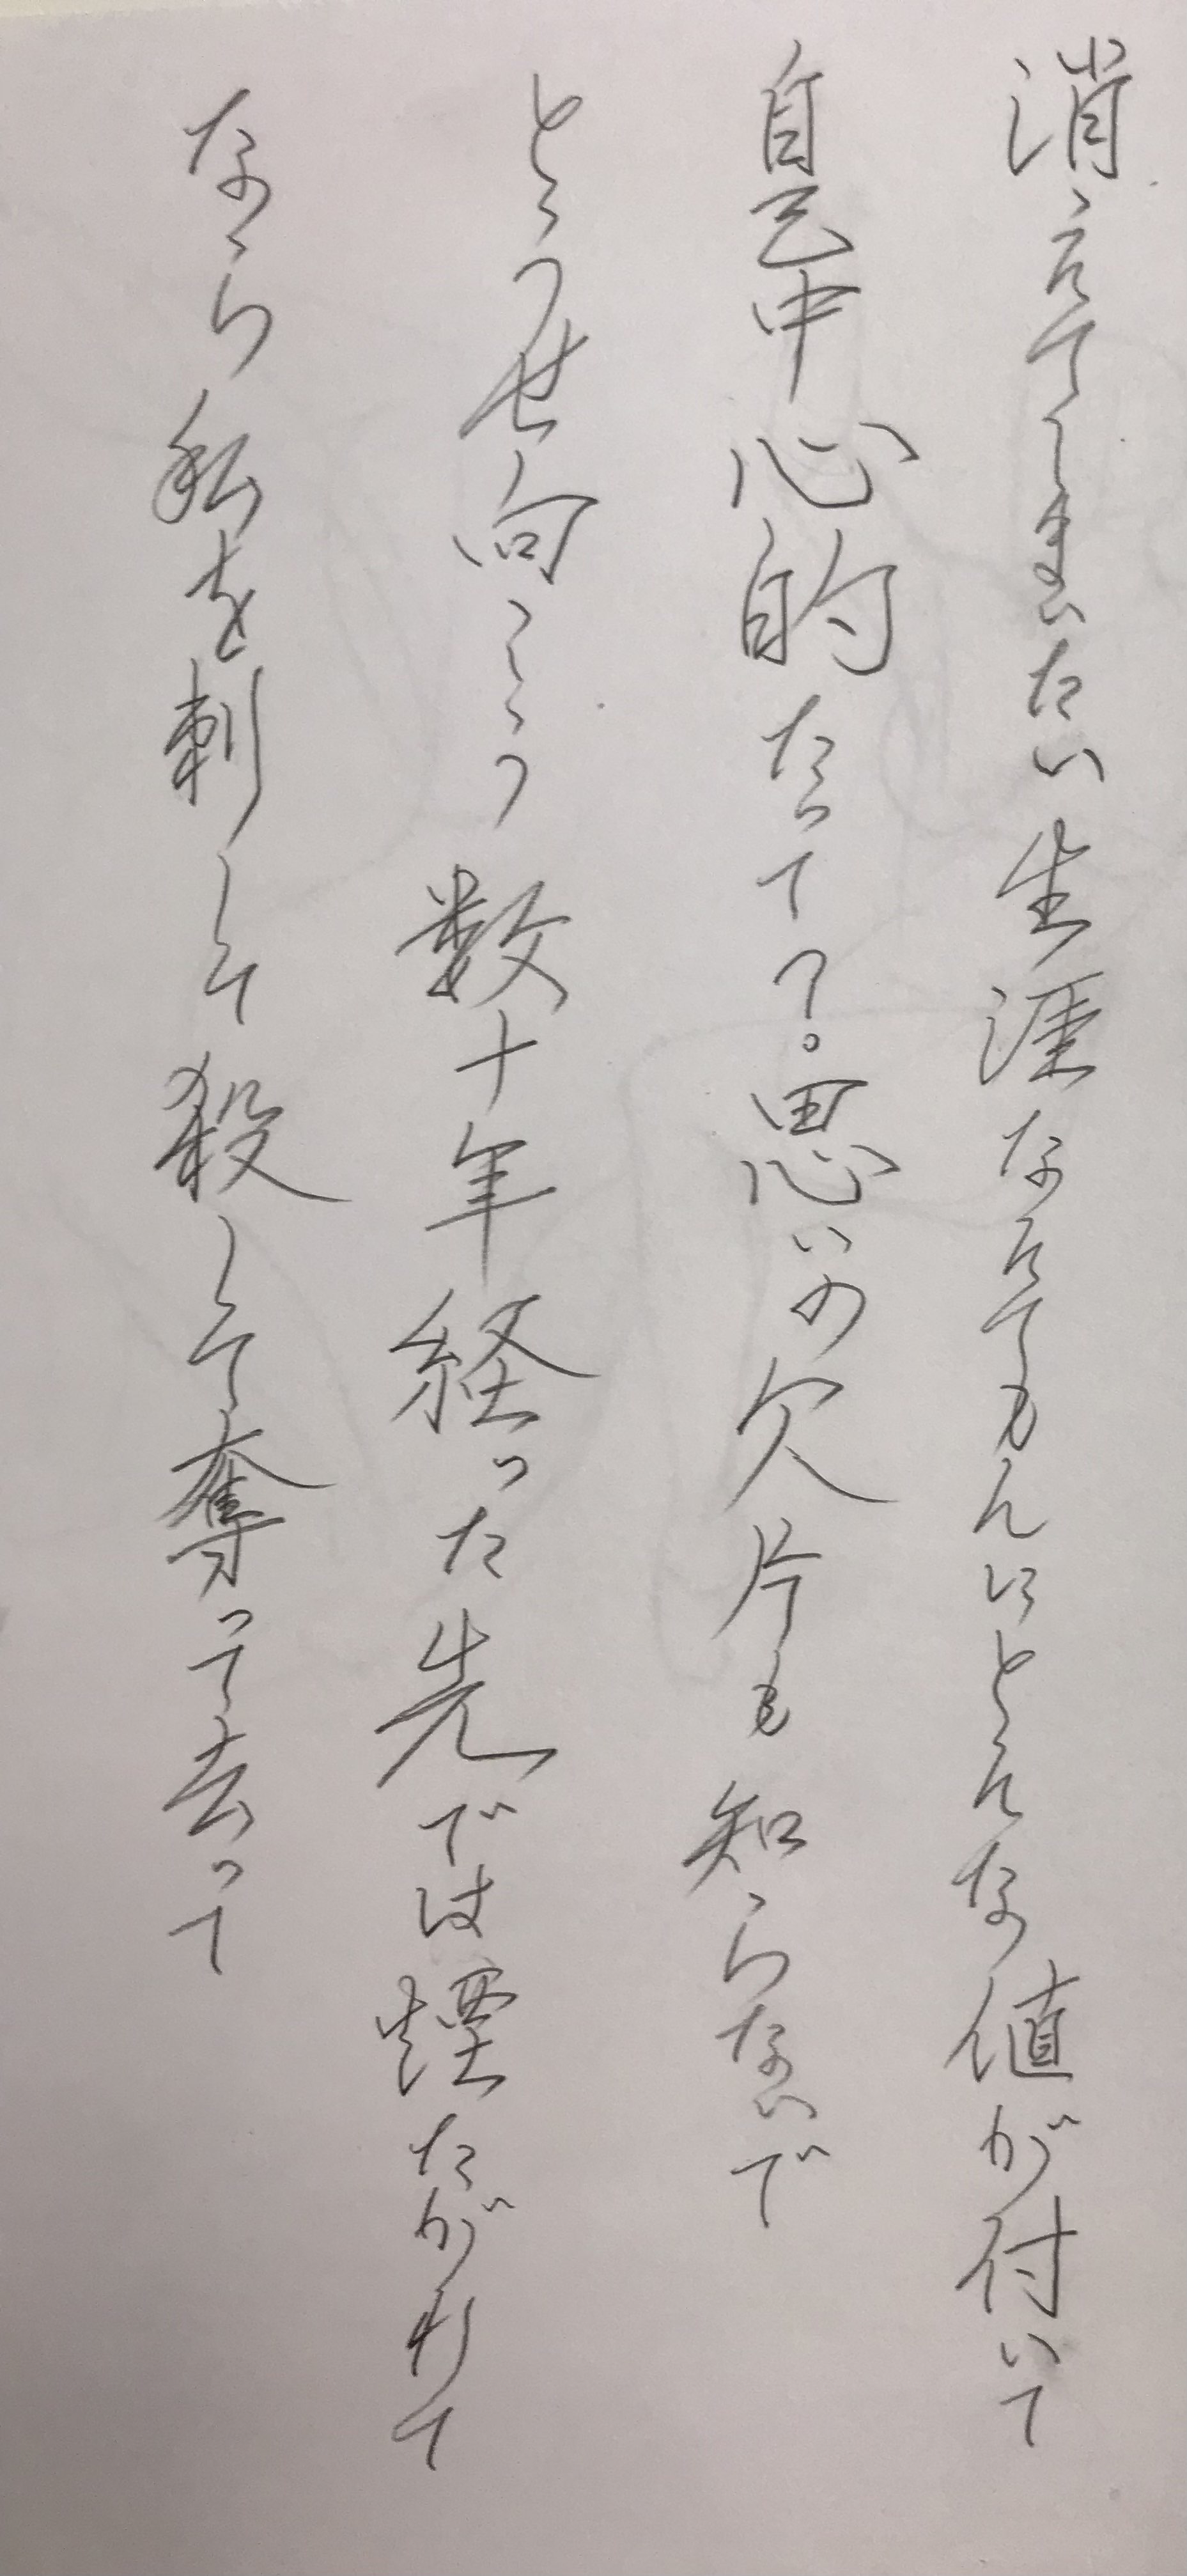 消えてしまいたい生涯なんてもんにどんな値が付いて
自己中心的だって?思いの欠片も知らないで
どうせ向こう数十年経った先では煙たがれて
なら私を刺して殺して奪って去って